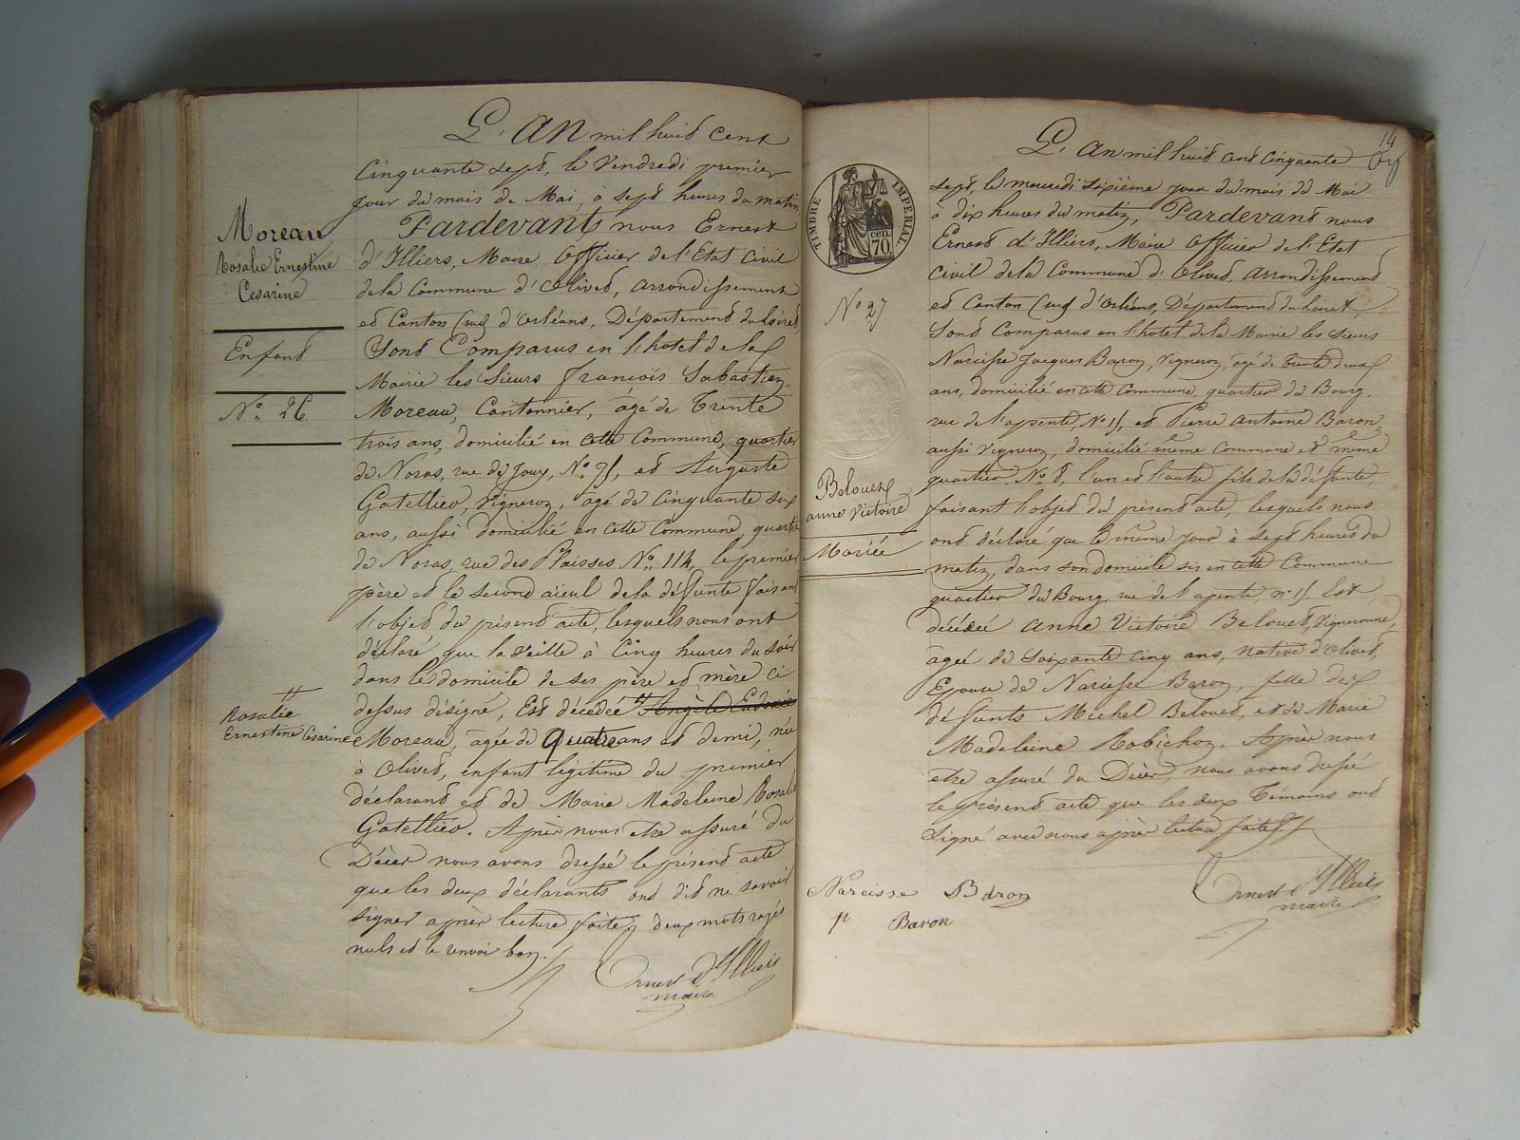 Moreau
Rosalie Ernestine
Cesarine
Enfant
No. 26
L'AN mil huit cent
Cinquante sept, le Vendredi premier
jour du mois de Mai, à sept heures du matin
Pardevant nous Ernest
d'Illiers, Maire Officier de l'Etat Civil
de la Commune d'Olivet, arrondissement
et Canton Sud d'Orléans, Département du Loiret
Sont Comparus en l'hotel de la
Mairie les Sieurs François Sabastien
Moreau, Cantonnier, âgé de Trente
trois ans, domicilié en cette Commune, quartier
de Noras, rue de Jouy, No. 71, et Auguste
Gatellier, Vigneron, âgé de Cinquante six
ans, aussi domicilié en cette Commune, quartier
de Noras, rue des Plaisses No. 114, le premier
père et le second aïeul de la défunte faisant
l'objet du présent acte, lesquels nous ont
déclaré que la veille à Cinq heures du soir
dans le domicile de ses père et mère ci
dessus désigné, Est décédée
Rosalie
Ernestine Césarine
Moreau, âgée de Quatre ans et demi, née
à Olivet, enfant légitime du premier
déclarant et de Marie Madeleine Rosalie
Gatellier. Après nous etre assuré du
Décès nous avons dressé le présent acte
que les deux déclarants ont dit ne savoir
signer après lecture faite, deux mots rayés
nuls et le renvoi bon.
Ernest d'Illiers
maire
14
TIMBRE IMPERIAL
70 cen.
No 27
Belouet
anne Victoire
Mariée
L'an mil huit cent Cinquante
sept, le mercredi sixième jour du mois de Mai
à dix heures du matin, Pardevant nous
Ernest d'Illiers, Maire Officier de l'Etat
civil de la Commune d'Olivet, arrondissement
et Canton Sud d'Orléans, Département du Loiret
Sont Comparus en l'hotel de la Mairie les Sieurs
Narcisse Jacques Baron, Vigneron, âgé de trente deux
ans, domicilié en cette Commune, quartier du Bourg
rue de l'apente, No 11, et Pierre Antoine Baron,
aussi Vigneron, domicilié même Commune et même
quartier No 8, l'un et l'autre fils de la défunte,
faisant l'objet du présent acte, lesquels nous
ont déclaré que le même jour à sept heures du
matin, dans son domicile sis en cette Commune
quartier du Bourg, rue de l'apente, no 11 Est
décédée Anne Victoire Belouet, Vigneronne,
âgée de Soixante cinq ans, native d'Olivet,
Epouse de Narcisse Baron, fille de
défunts Michel Belouet, et de Marie
Madeleine Robichon. Après nous
etre assuré du Décès, nous avons dressé
le présent acte que les deux Témoins ont
Signé avec nous après lecture faite
Narcisse Baron
p Baron
Ernest d'Illiers
maire